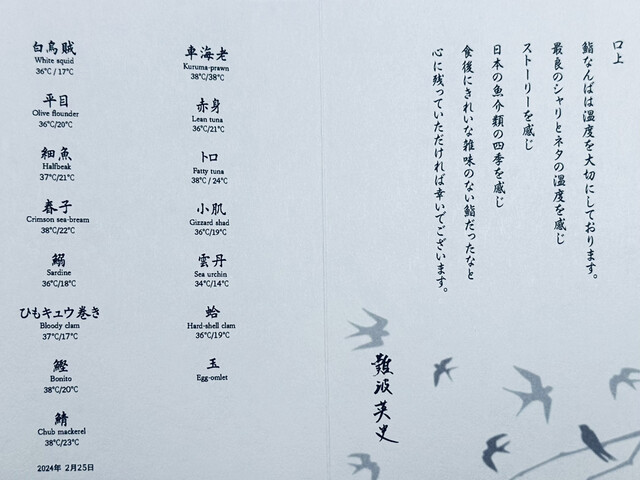 白烏賊
White squid
36°C / 17°C
平目
Olive flounder
36°C/20°C
細魚
Halfbeak
37°C/21°C
春子
Crimson sea-bream
38°C/22°C
鰯
Sardine
36°C/18°C
ひもキュウ巻き
Bloody clam
37°C/17°C
鰹
Bonito
38°C/20°C
鯖
Chub mackerel
38°C/23°C
2024年 2月25日
車海老
Kuruma-prawn
38°C/38°C
赤身
Lean tuna
36°C/21°C
トロ
Fatty tuna
38°C / 24°C
小肌
Gizzard shad
36°C/19°C
雲丹
Sea urchin
34°C/14°C
蛤
Hard-shell clam
36°C/19°C
玉
Egg-omlet
口上
鮨なんばは温度を大切にしております。
最良のシャリとネタの温度を感じ
ストーリーを感じ
日本の魚介類の四季を感じ
食後にきれいな雑味のない鮨だったなと
心に残っていただければ幸いでございます。
難波英史